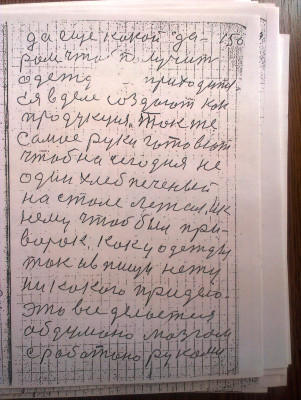 да еще какой да- 150
ром чтоб получить
одежд приходит-
ся в деле создают как
продукция. Также
самое руки готовят
чтоб на сегодня не
один хлеб печеный
на столе лежал, и к
нему чтоб был при-
ворок. Как у одежды
так и в пищи нету
ни какого придела
Это все делается
обдумано мозгом
сработано руками